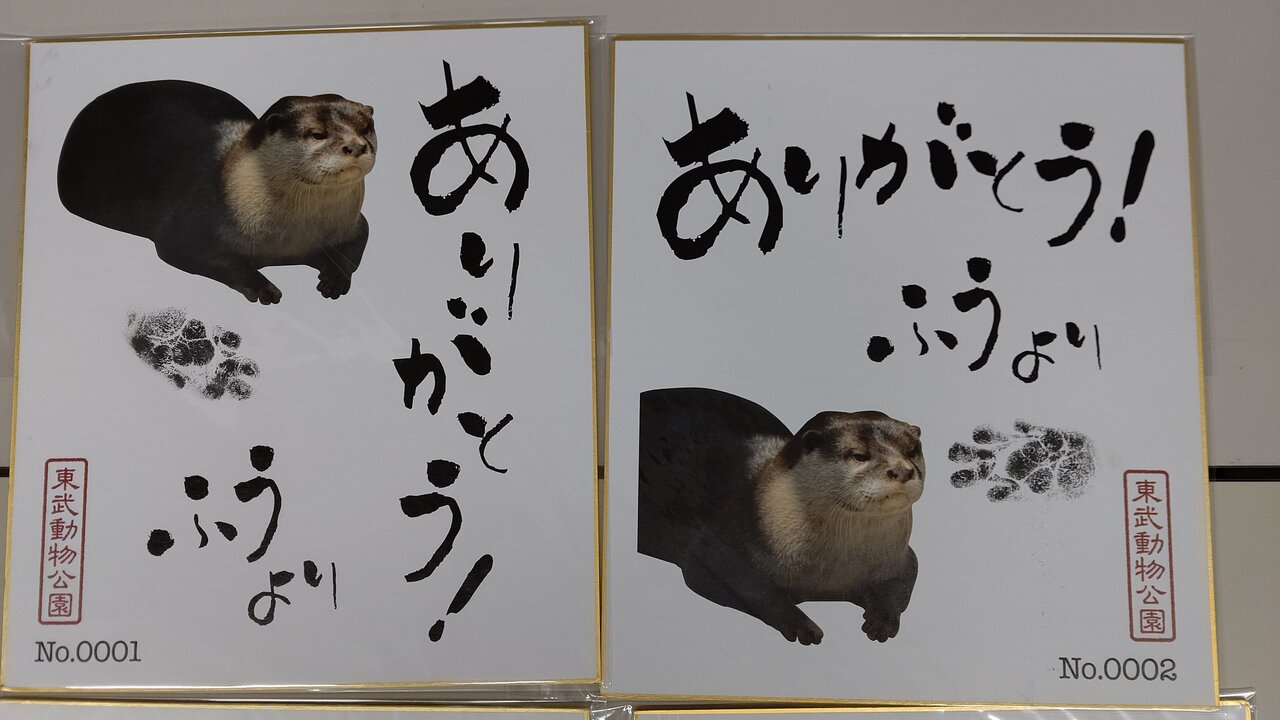 ありがとう!
ふうより
東武動物公園
No.0001
ありがとう!
ふうより
東武動物公園
No.0002